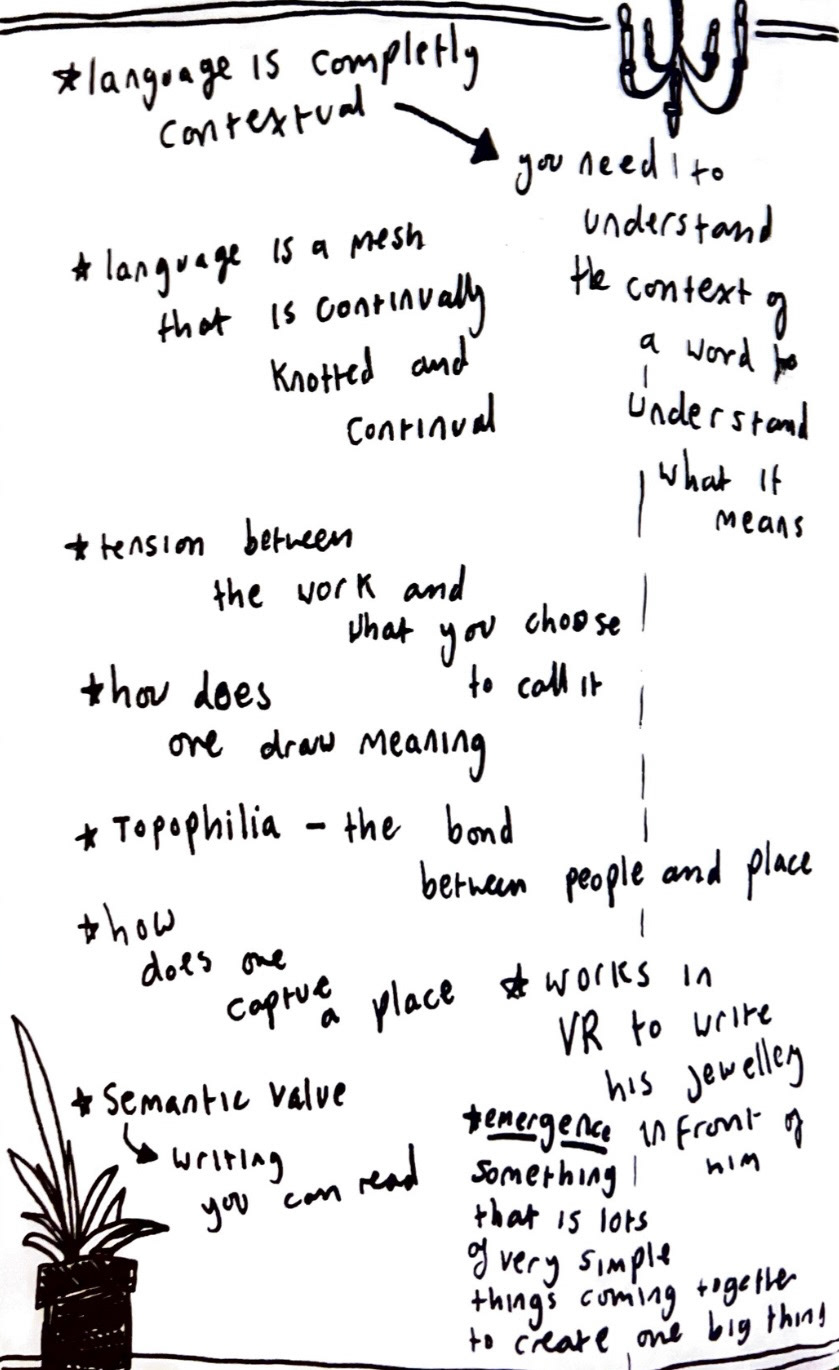 *language is completly
contextual
you need to
understand
the context of
a word to
understand
what it
means
*language is a mesh
that is continually
knotted and
continual
*tension between
the work and
what you choose
to call it
*how does
one draw meaning
*Topophilia – the bond
between people and place
*how
does one
captue
a place
*works in
VR to write
his jewellery
in front of
him
*Semantic value
writing
you can read
*emergence
something
that is lots
of very simple
things coming together
to create one big thing